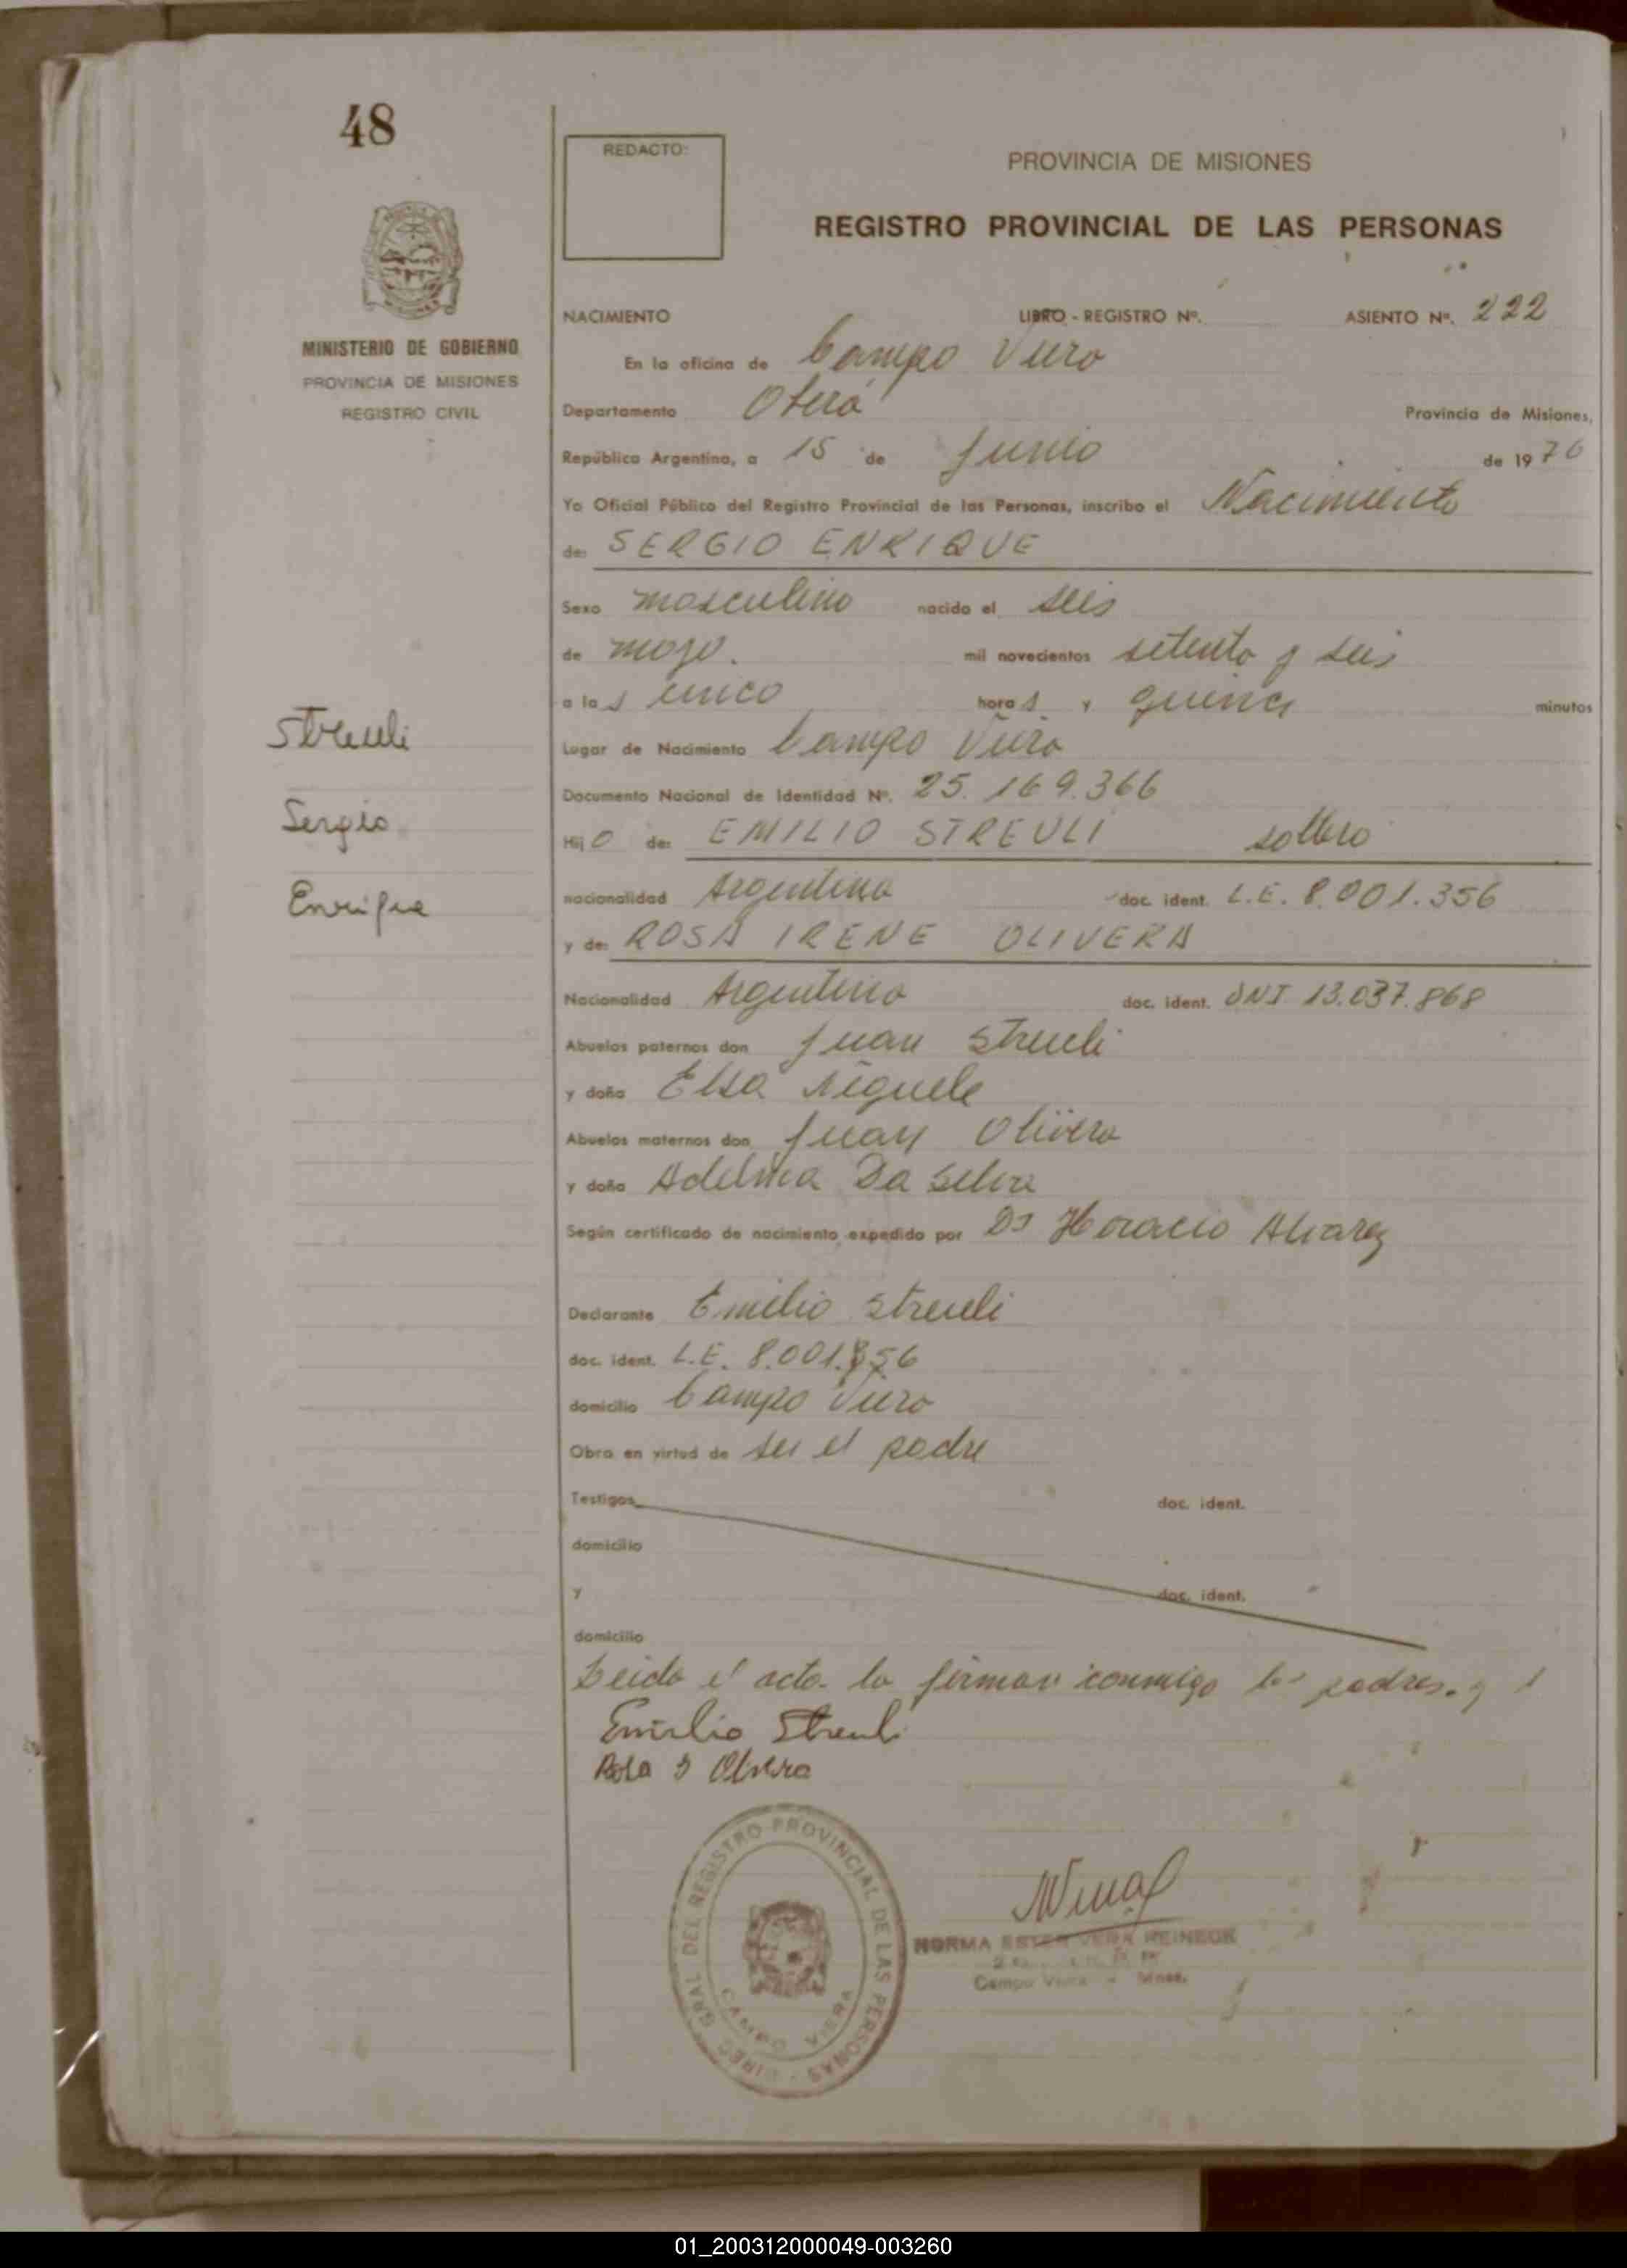 48
REDACTO:
PROVINCIA DE MISIONES
REGISTRO PROVINCIAL DE LAS PERSONAS
MINISTERIO DE GOBIERNO
PROVINCIA DE MISIONES
REGISTRO CIVIL
NACIMIENTO LIBRO - REGISTRO Nº. ASIENTO Nº. 222
En la oficina de Campo Viera
Departamento Oberá Provincia de Misiones,
República Argentina, a 15 de Junio de 1976
Yo Oficial Público del Registro Provincial de las Personas, inscribo el Nacimiento
de: SERGIO ENRIQUE
Sexo masculino nacido el seis
de mayo. mil novecientos setenta y seis
a las cinco horas y quince minutos
Streuli
Lugar de Nacimiento Campo Viera
Documento Nacional de Identidad Nº. 25.169.366
Sergio
Hijo de: EMILIO STREULI soltero
Enrique
nacionalidad Argentina doc. ident. L.E. 8.001.356
y de: ROSA IRENE OLIVERA
Nacionalidad Argentina doc. ident. DNI 13.037.868
Abuelos paternos don Juan Streuli
y doña Elsa
Abuelos maternos don Juan Olivera
y doña Adelma Da Silva
Según certificado de nacimiento expedido por Dr Horacio Alvarez
Declarante Emilio Streuli
doc. ident. L.E. 8.001.356
domicilio Campo Viera
Obra en virtud de ser el padre
Testigos doc. ident.
domicilio
y doc. ident.
domicilio
Leida el acta la firman conmigo los padres. y
Emilio Streuli
Rosa I Olivera
DIREC. GRAL. DEL REGISTRO PROVINCIAL DE LAS PERSONAS
CAMPO VIERA
NORMA ESTER VERA REINECK
Campo Viera - Mnes.
01_200312000049-003260